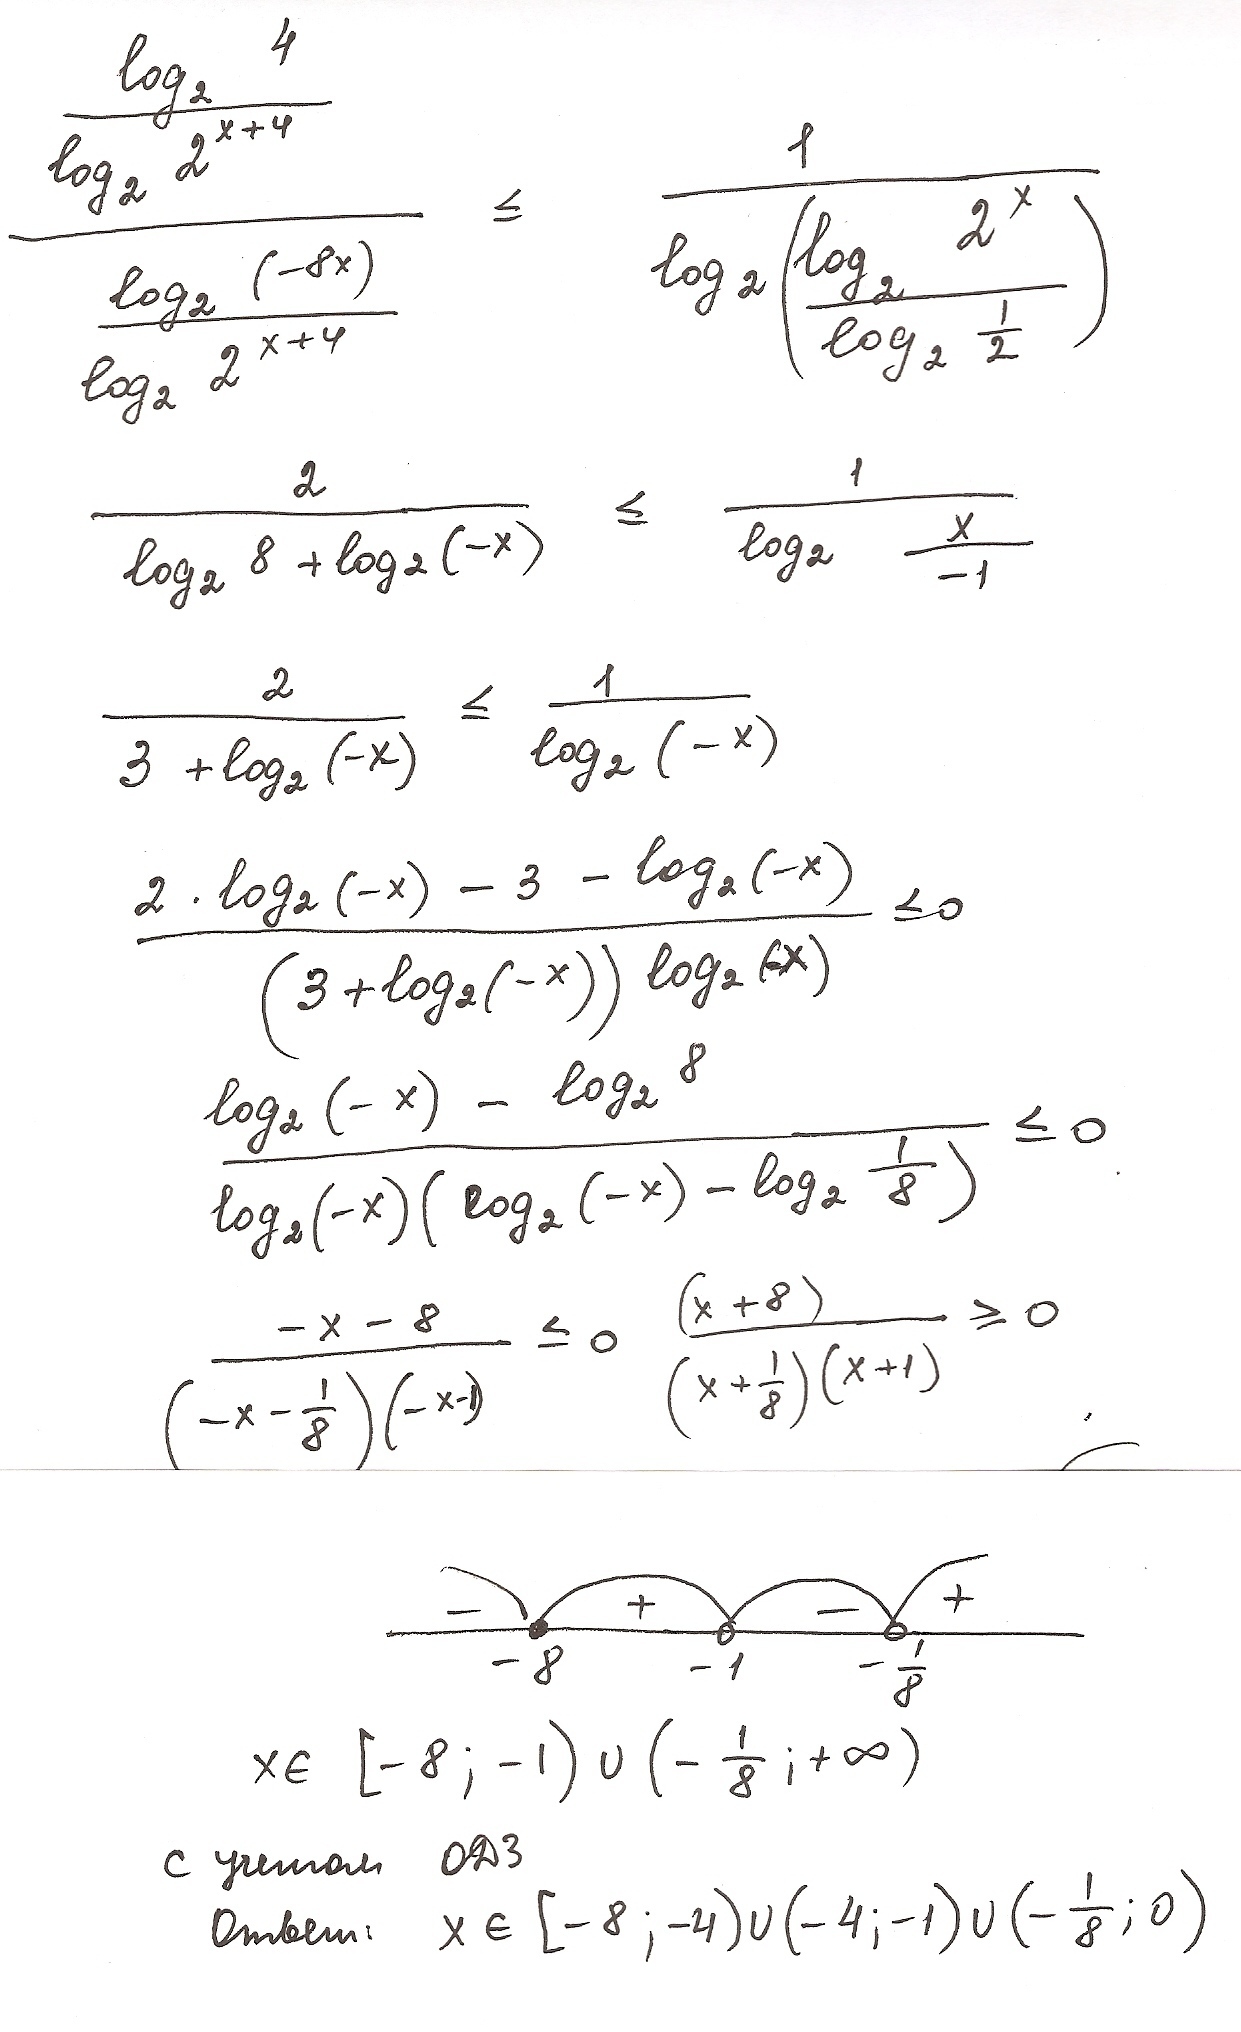 \frac{\frac{log_2 4}{log_2 2^{x+4}}}{\frac{log_2 (-8x)}{log_2 2^{x+4}}} ≤ \frac{1}{log_2 \left(\frac{log_2 2^x}{log_2 \frac{1}{2}}\right)}
\frac{2}{log_2 8 + log_2 (-x)} ≤ \frac{1}{log_2 \frac{x}{-1}}
\frac{2}{3 + log_2 (-x)} ≤ \frac{1}{log_2 (-x)}
\frac{2 · log_2 (-x) - 3 - log_2 (-x)}{(3 + log_2 (-x)) log_2 (-x)} ≤ 0
\frac{log_2 (-x) - log_2 8}{log_2 (-x) (log_2 (-x) - log_2 \frac{1}{8})} ≤ 0
\frac{-x - 8}{(-x - \frac{1}{8})(-x-1)} ≤ 0 \frac{(x+8)}{(x + \frac{1}{8})(x+1)} ≥ 0
- + - +
-8 -1 -\frac{1}{8}
x ∈ [-8; -1) ∪ (-\frac{1}{8}; +∞)
с учетом ОДЗ
Ответ: x ∈ [-8; -4) ∪ (-4; -1) ∪ (-\frac{1}{8}; 0)